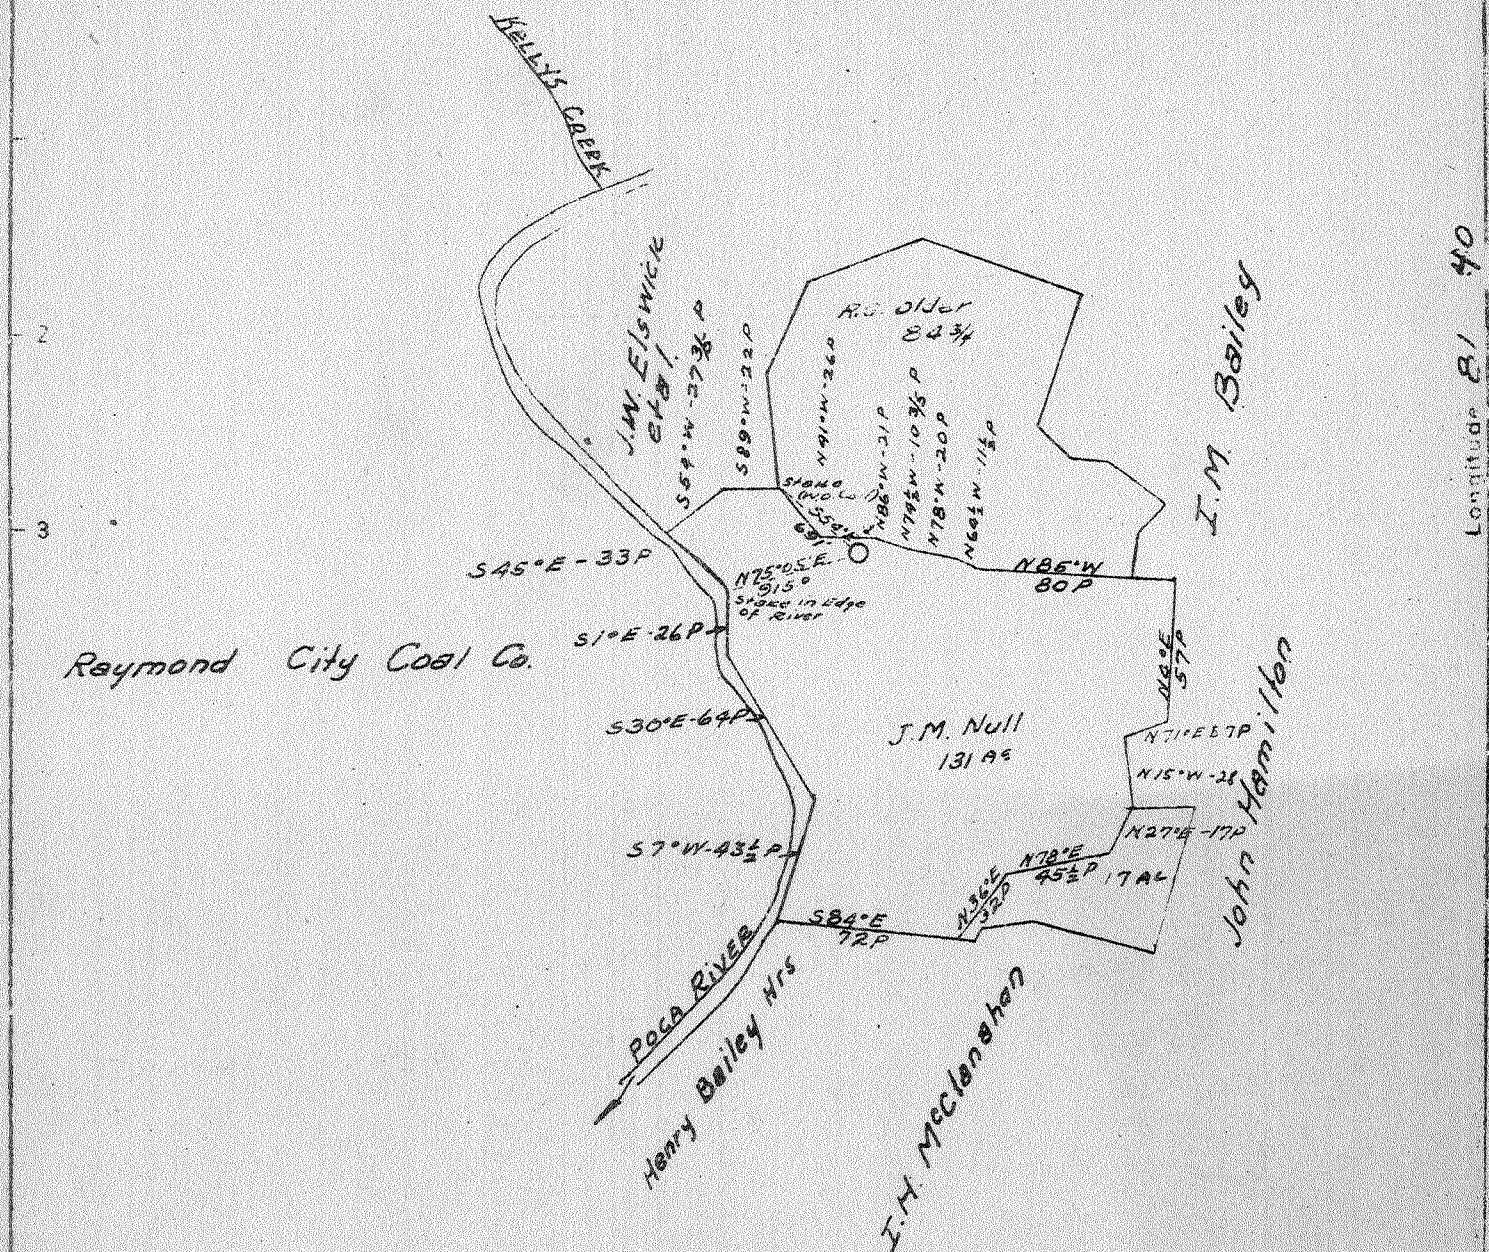 KELLYS CREEK
2
3
J.W. Elswick
et al.
S54°W-27 3/5 P
S89°W-22P
R.C. Older
84 3/4
N41°W-26P
N86°W-21P
N74½W-10 3/5 P
N78°W-20P
N64½W-11½P
I. M. Bailey
Longitude 81 40
Stake
S54°E
691'
S45°E-33P
N75°05'E
915°
Stake in Edge
of River
N86°W
80P
S1°E-26P
Raymond City Coal Co.
N4°E
57P
S30°E-64P
J.M. Null
131 Ac
N71°E
N15°W-28
S7°W-43½P
N27°E-17P
N78°E
45½P
17 Ac
N36°E
32P
John Hamilton
S84°E
72P
POCA RIVER
Henry Bailey Hrs
I.H. McClanahan